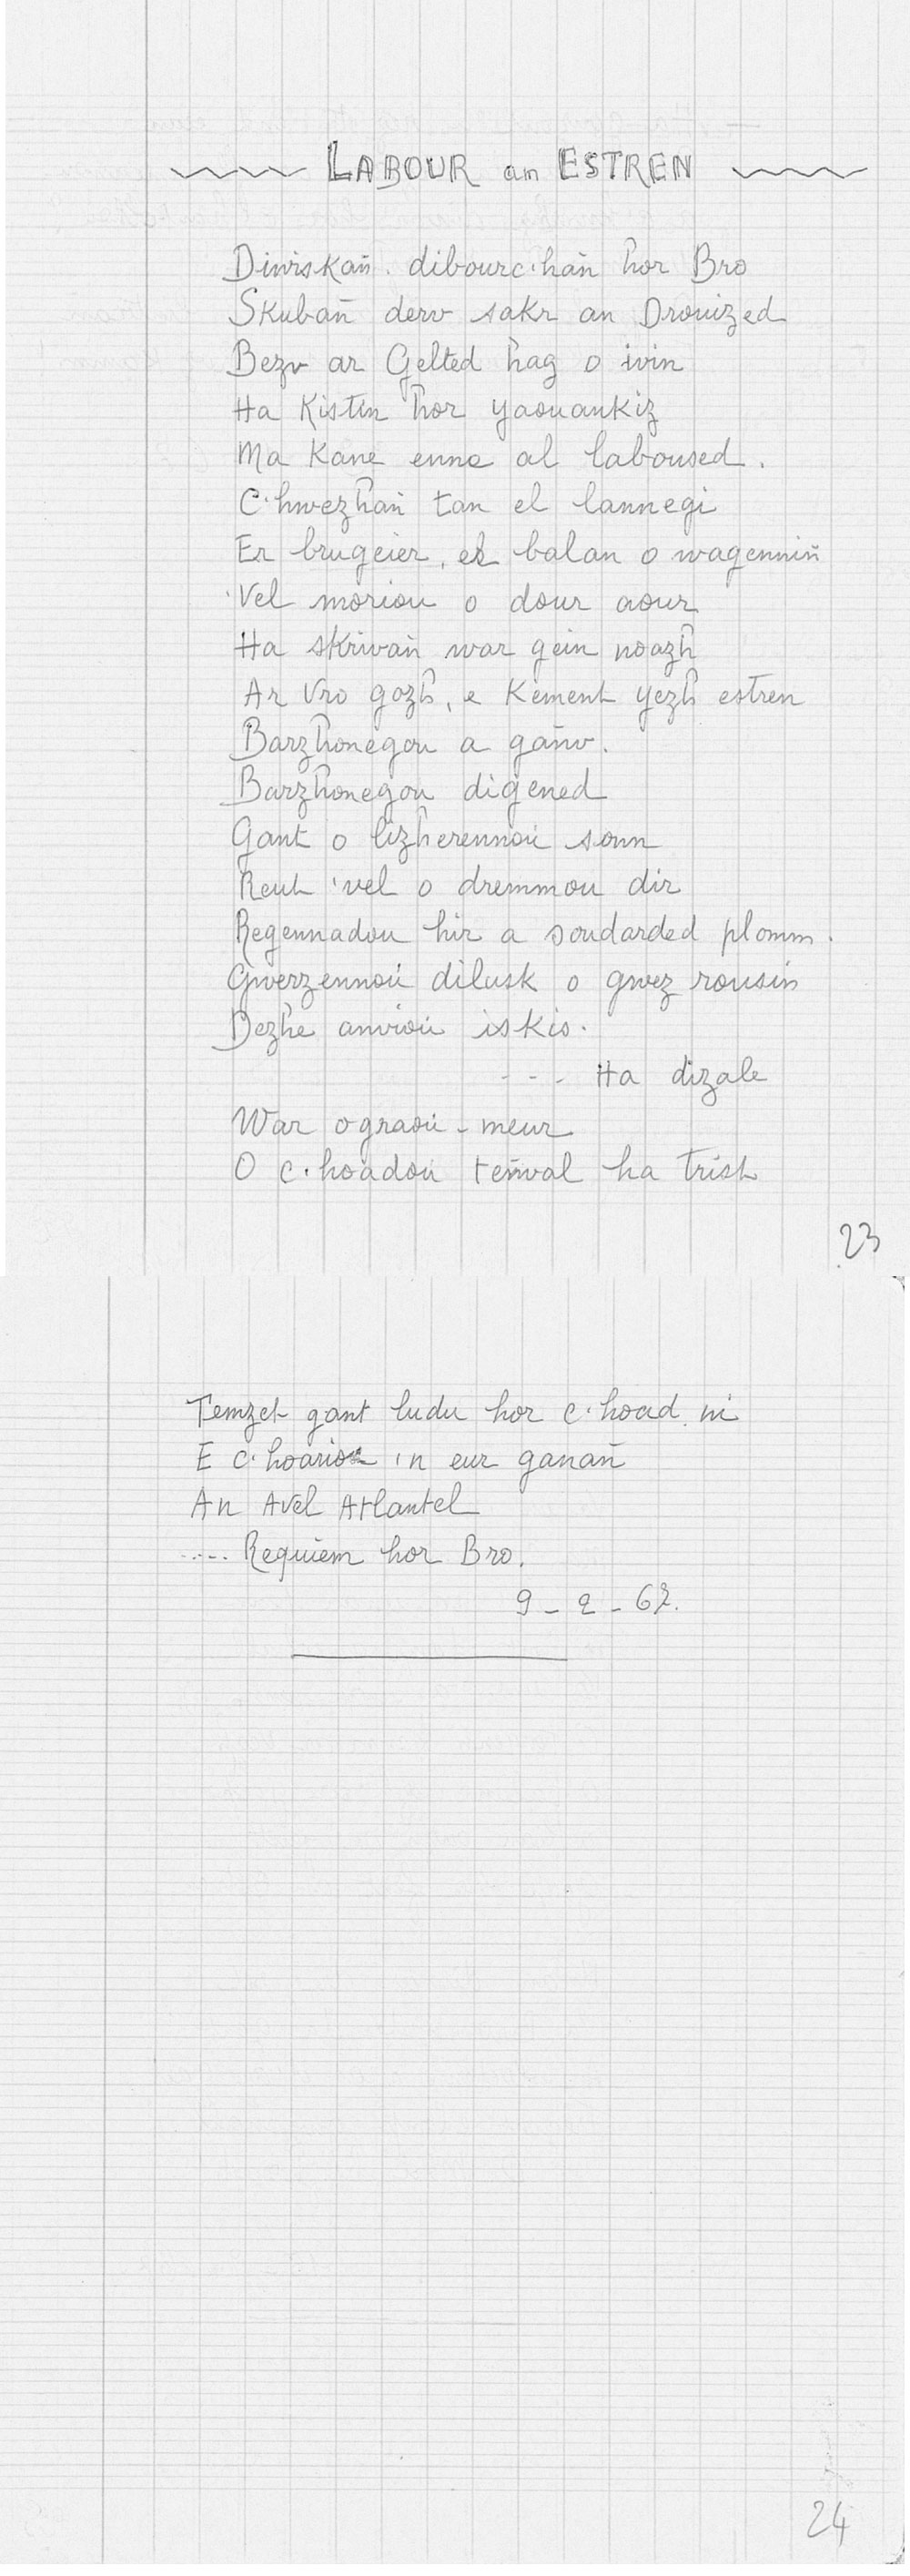 LABOUR an ESTREN
Diwiskañ. dibourc'hañ hor Bro
Skubañ derv sakr an Drouized
Bezv ar Gelted hag o ivin
Ha Kistin hor yaouankiz
Ma Kane enno al laboused.
C'hwezhañ tan el lannegi
Er brugeier, el balan o wagenniñ
'Vel moriou o dour aour
Ha skrivañ war gein noazh
Ar Vro gozh, e Kement yezh estren
Barzhonegou a gañv.
Barzhonegou digened
Gant o lizherennoù sonn
Reut 'vel o dremmou dir
Regennadou hir a soudarded plomm.
Gwerzennoù dilusk o gwez rousin
Dezhe anvioù iskis.
--- Ha dizale
War ograoù-meur
O c'hoadoù teñval ha trist
23
Temzet gant ludu hor c'hoad ni
E c'hoario 'n eur ganañ
An Avel Atlantel
..... Requiem hor Bro.
9-2-67.
24